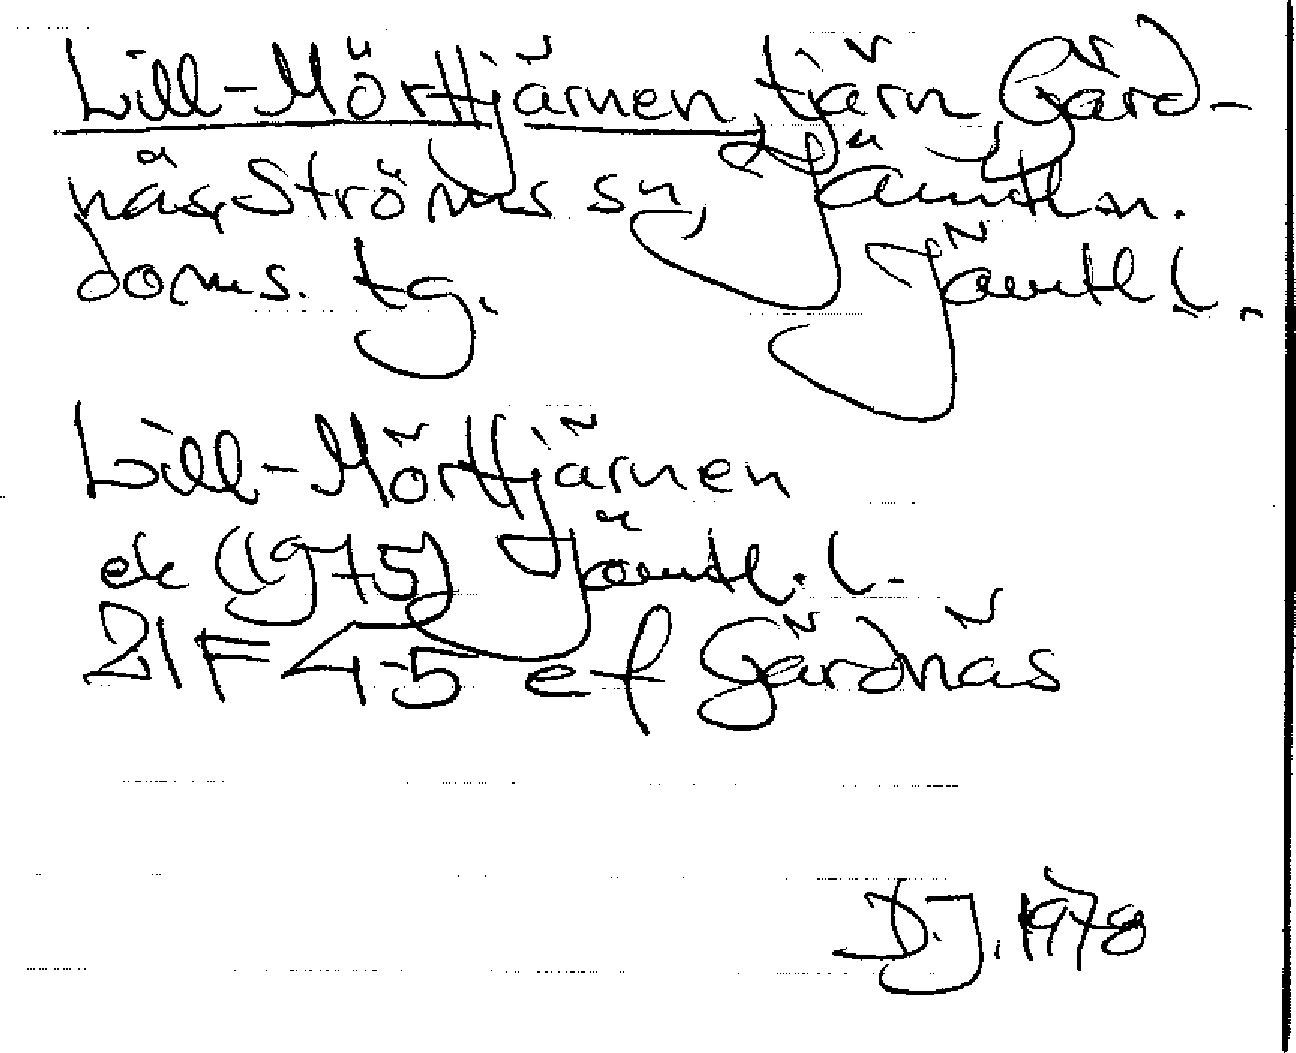 Lill-Mörttjärnen, tjärn Gärd-
näs, Ströms sn, Jämtl. n.
doms. tg. Jämtl l.
Lill-Mörttjärnen
ek (1975) Jämtl. l.
21F 4-5 e-f Gärdnäs
D.J. 1978